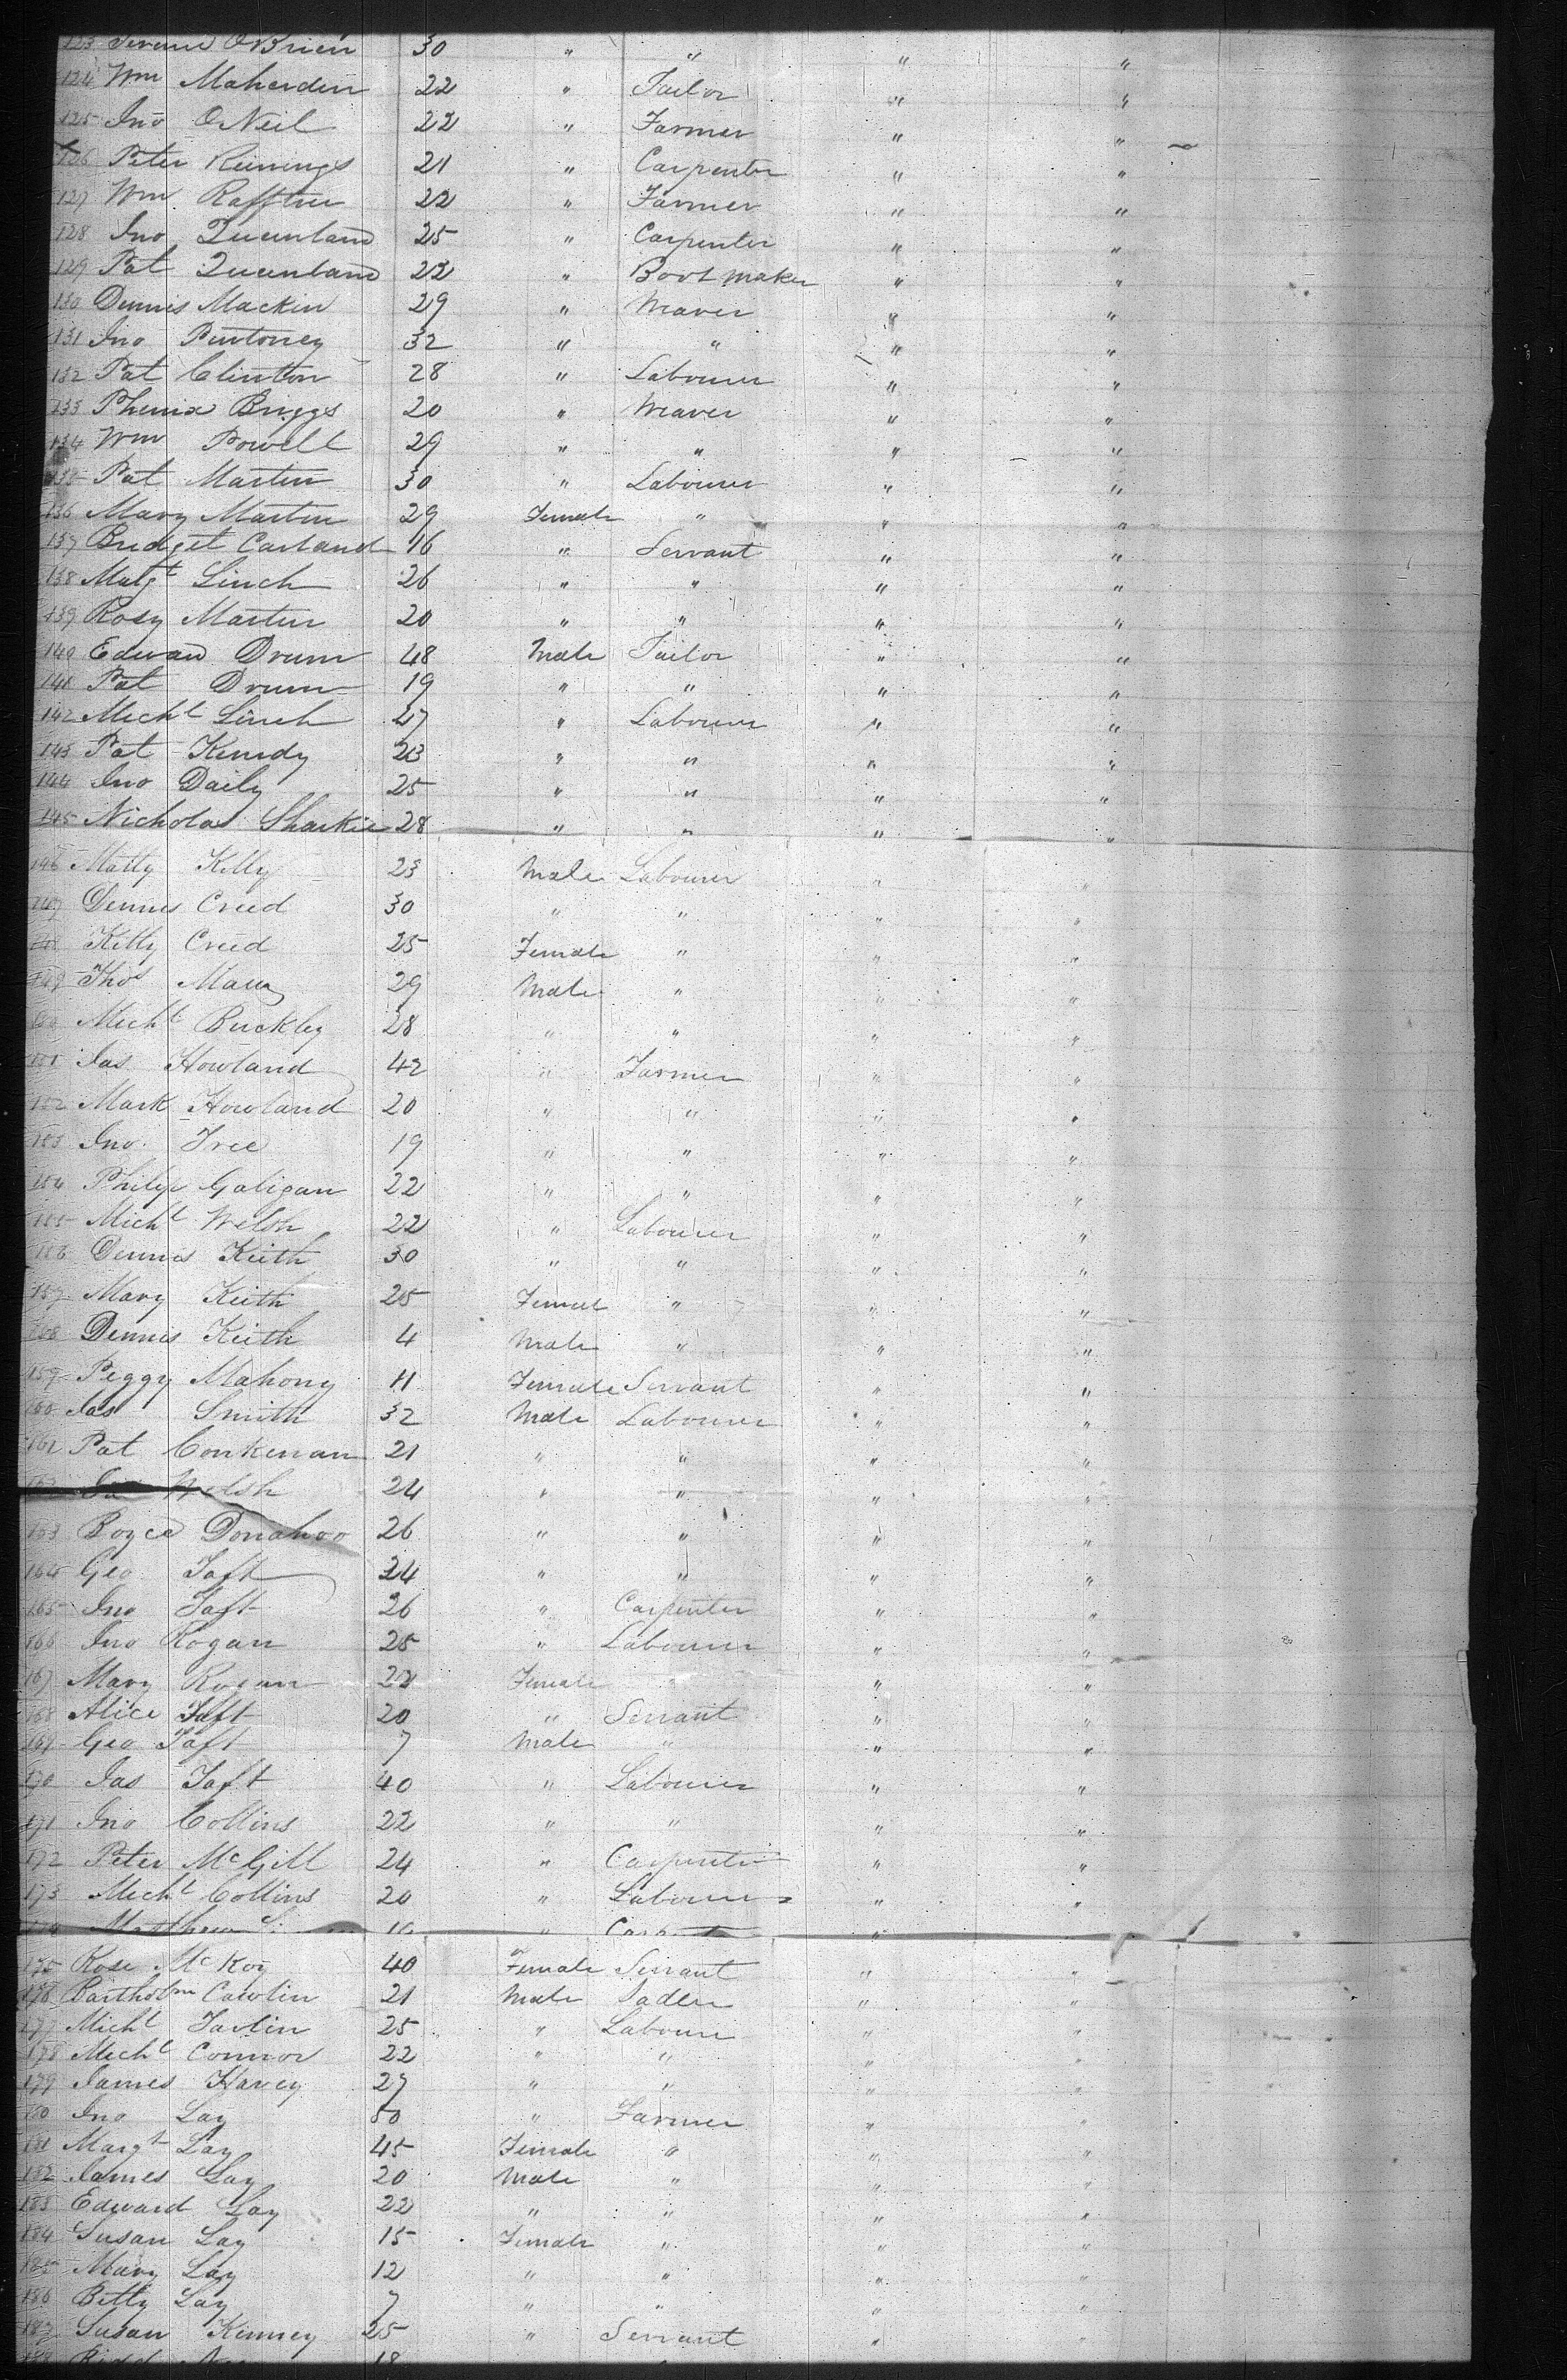 123 O'Brien 30 " " " "
124 Wm Maherdin 22 " Tailor " "
125 Jno O'Neil 22 " Farmer " "
126 Peter 21 " Carpenter " "
127 Wm 22 " Farmer " "
128 Jno Queenland 25 " Carpenter " "
129 Pat Queenland 22 " Boot maker " "
130 Dennis Mackin 29 " Weaver " "
131 Jno 32 " " " "
132 Pat Clinton 28 " Labourer " "
133 Phenix Briggs 20 " Weaver " "
134 Wm Powell 29 " " " "
135 Pat Martin 30 " Labourer " "
136 Mary Martin 29 Female " " "
137 Bridget Carland 16 " Servant " "
138 Malgt Linch 26 " " " "
139 Rosy Martin 20 " " " "
140 Edward Drum 48 Male Tailor " "
141 Pat Drum 19 " " " "
142 Michl Linch 27 " Labourer " "
143 Pat Kenedy 23 " " " "
144 Jno Daily 25 " " " "
145 Nicholas Sharkie 28 " " " "
146 Matty Killy 23 Male Labourer " "
147 Dennis Creed 30 " " " "
148 Kitty Creed 25 Female " " "
149 Thos 29 Male " " "
150 Michl Buckley 28 " " " "
151 Jas Howland 42 " Farmer " "
152 Mark Howland 20 " " " "
153 Jno Tree 19 " " " "
154 Philip Galigan 22 " " " "
155 Michl Welsh 22 " Labourer " "
156 Dennis Keith 30 " " " "
157 Mary Keith 25 Female " " "
158 Dennis Keith 4 Male " " "
159 Peggy Mahony 11 Female Servant " "
160 Jas Smith 32 Male Labourer " "
161 Pat Conkenan 21 " " " "
162 Welsh 24 " " " "
163 Boyce Donahoo 26 " " " "
164 Geo Taft 24 " " " "
165 Jno Taft 26 " Carpenter " "
166 Jno Rogan 25 " Labourer " "
167 Mary Rogan 22 Female " " "
168 Alice Taft 20 " Servant " "
169 Geo Taft 7 Male " " "
170 Jas Taft 40 " Labourer " "
171 Jno Collins 22 " " " "
172 Peter McGill 24 " Carpenter " "
173 Michl Collins 20 " Labourer " "
174 Matthew " "
175 Rose McKoy 40 Female Servant " "
176 Bartholmw Cawlin 21 Male Sadler " "
177 Michl Tavlin 25 " Labourer " "
178 Michl Connor 22 " " " "
179 James Harvey 27 " " " "
180 Jno Lay 50 " Farmer " "
181 Margt Lay 45 Female " " "
182 James Lay 20 Male " " "
183 Edward Lay 22 " " " "
184 Susan Lay 15 Female " " "
185 Mary Lay 12 " " " "
186 Betty Lay 7 " " " "
187 Susan Kinney 25 " Servant " "
188 18